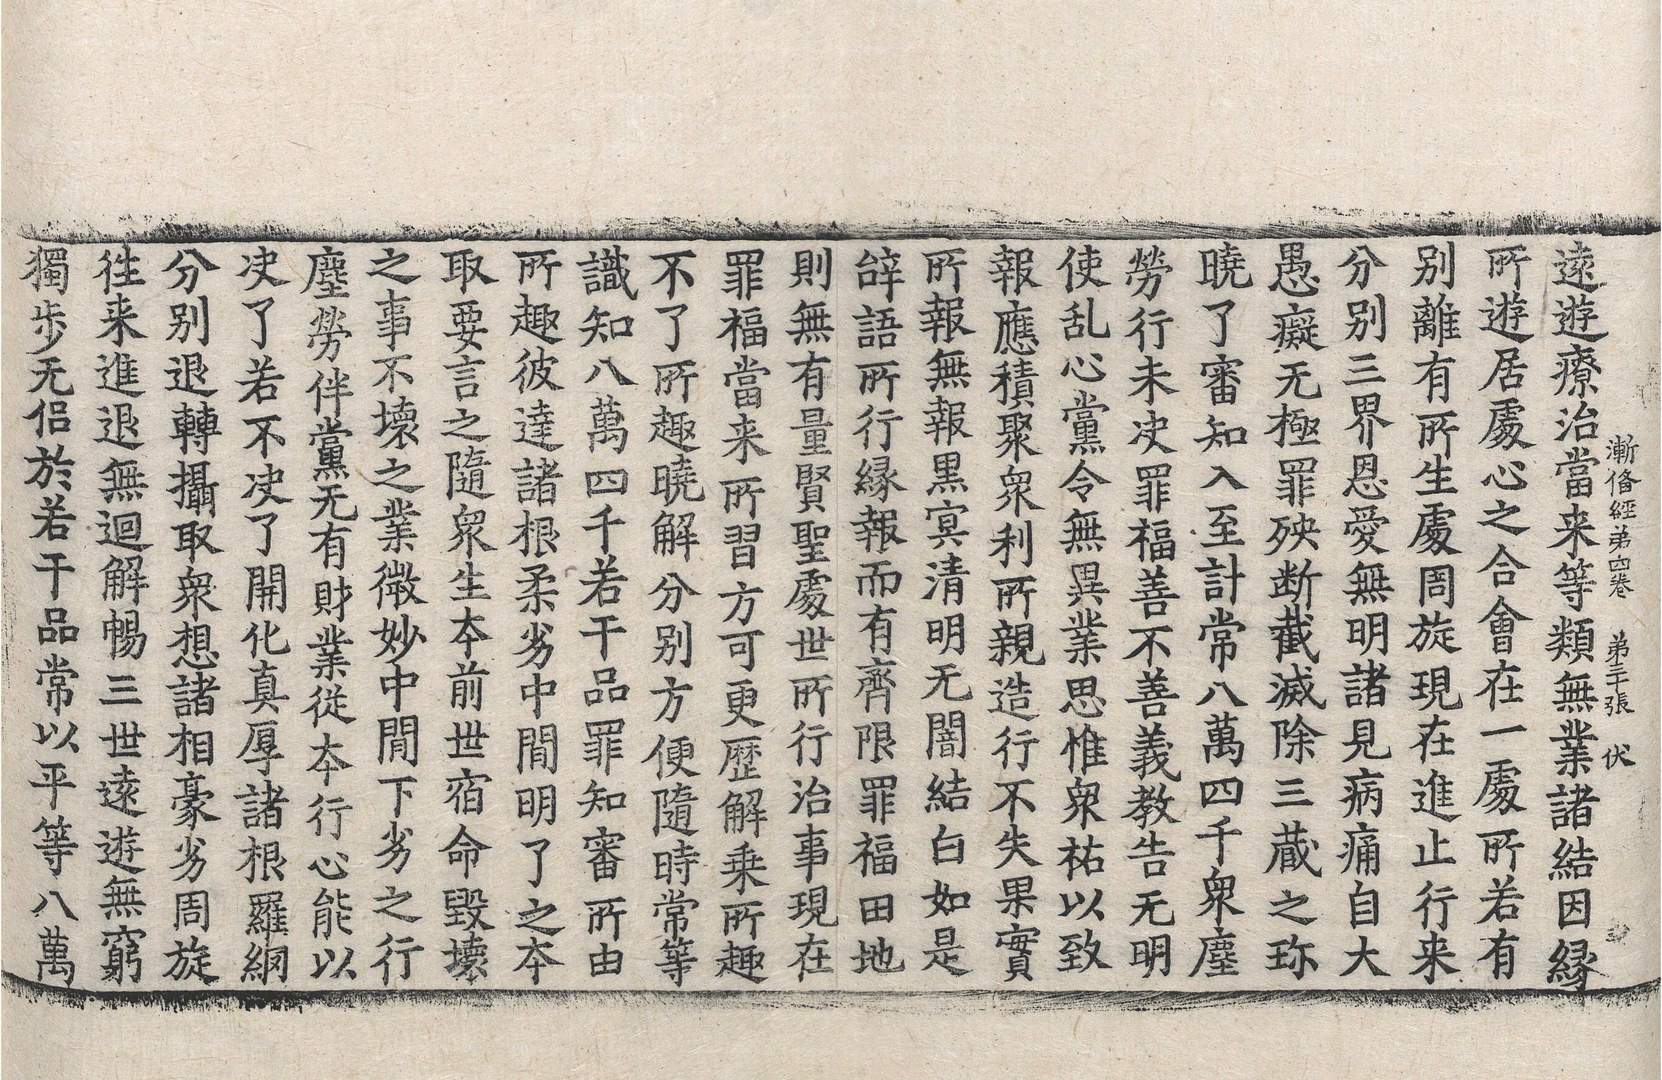 漸俻經弟四卷　弟三十張　伏
遠遊療治當来等類無業諸結因縁
所遊居處心之合會在一處所若有
别離有所生處周旋現在進止行来
分别三界恩愛無明諸見病痛自大
愚癡无極罪殃断截滅除三蔵之珎
曉了審知入至計常八萬四千衆塵
勞行未决罪福善不善義教告无明
使乱心黨令無異業思惟衆祐以致
報應積聚衆利所親造行不失果實
所報無報黒冥清明无闇結白如是
辝語所行縁報而有齊限罪福田地
則無有量賢聖處世所行治事現在
罪福當来所習方可更歷解乗所趣
不了所趣曉解分别方便隨時常等
識知八萬四千若干品罪知審所由
所趣彼達諸根柔劣中間明了之夲
取要言之隨衆生夲前世宿命毀壞
之事不壞之業微妙中間下劣之行
塵勞伴黨无有財業從夲行心能以
决了若不决了開化真厚諸根羅網
分别退轉攝取衆想諸相豪劣周旋
徃来進退無迴解暢三世遠遊無窮
獨步无侣於若干品常以平等八萬